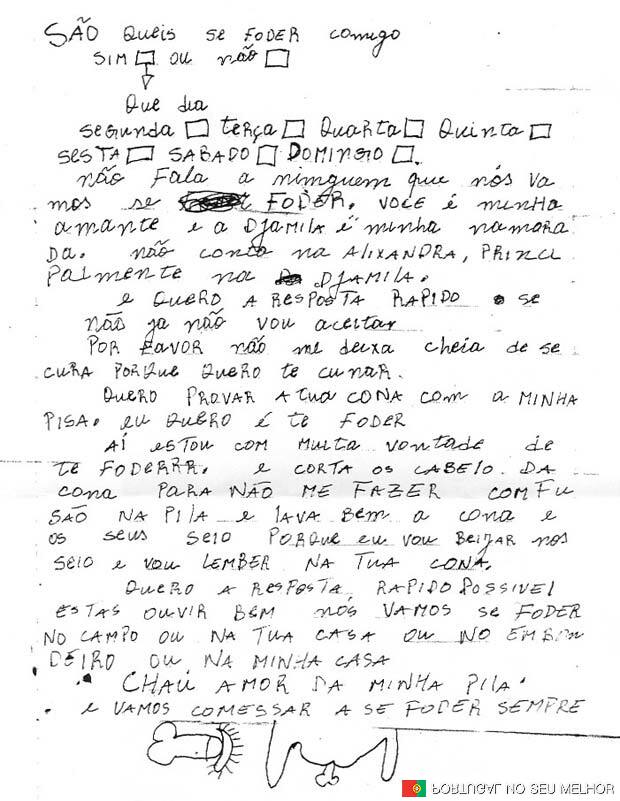 SÃO Queis se FODER comigo
SIM ou não
Que dia
segunda terça Quarta Quinta
SESTA SABADO DOMINGIO.
não Fala a ninguem que nós va
mos se FODER. VOCE é minha
amante e a DJAMILA é minha namora
Da. não conta na ALIXANDRA, PRINCI
Palmente na DJAMILA.
e QUERO A RESPOSTA RAPIDO se
não ja não vou aceitar
POR FAVOR não me deixa cheia de se
CURA PORQue QUERO te cunar.
QUERO PROVAR A tua CONA com a MINHA
PISA. eu QUERO é te FODER
AÍ estou com Muita vontade de
te FODERRR. e CORTA OS CABELO DA
cona PARA NÃO ME FAZER COMFU
SÃO NA PILA e lava Bem a cona e
os seus seio PORQUE eu vou BEIJAR nos
SEIO e vou LEMBER NA TUA CONA.
QUERO A RESPOSTA, RAPIDO POSSIVEL
ESTAS OUVIR BEM nós VAMOS se FODER
NO CAMPO OU NA TUA CASA OU NO EMBON
DEIRO OU NA MINHA CASA
CHAU AMOR DA MINHA PILA.
e VAMOS COMESSAR A SE FODER SEMPRE
PORTUGAL NO SEU MELHOR